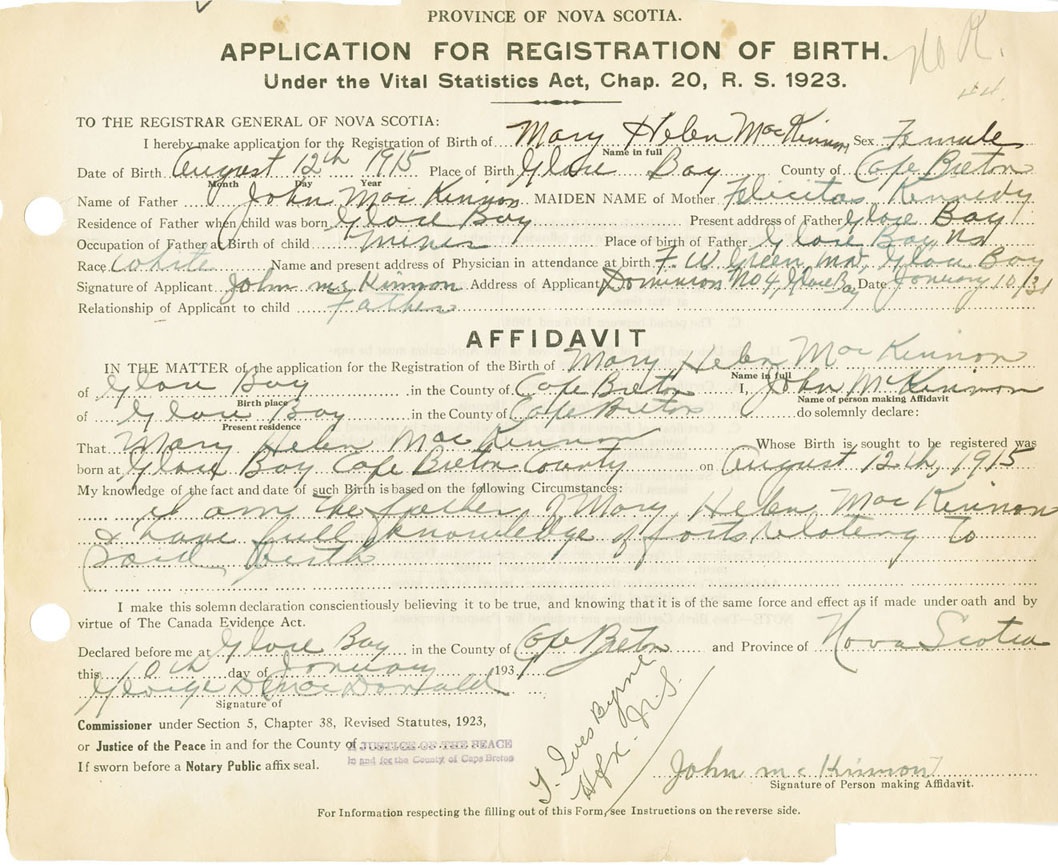 PROVINCE OF NOVA SCOTIA.
APPLICATION FOR REGISTRATION OF BIRTH.
Under the Vital Statistics Act, Chap. 20, R. S. 1923.
No R.
44.
TO THE REGISTRAR GENERAL OF NOVA SCOTIA:
I hereby make application for the Registration of Birth of Mary Helen MacKinnon Sex Female
Name in full
Date of Birth August 12th 1915 Place of Birth Glace Bay County of Cape Breton
Month Day Year
Name of Father John MacKinnon MAIDEN NAME of Mother Felicitas Kennedy
Residence of Father when child was born Glace Bay Present address of Father Glace Bay
Occupation of Father at Birth of child Miner Place of birth of Father Glace Bay NS
Race White Name and present address of Physician in attendance at birth F. W. Green, MD, Glace Bay
Signature of Applicant John Mc Kinnon Address of Applicant Dominion No 4, Glace Bay Date January 10/31
Relationship of Applicant to child Father
AFFIDAVIT
IN THE MATTER of the application for the Registration of the Birth of Mary Helen MacKinnon
Name in full
of Glace Bay in the County of Cape Breton I, John McKinnon
Birth place Name of person making Affidavit
of Glace Bay in the County of Cape Breton do solemnly declare:
Present residence
That Mary Helen MacKinnon Whose Birth is sought to be registered was
born at Glace Bay Cape Breton County on August 12th, 1915
My knowledge of the fact and date of such Birth is based on the following Circumstances:
I am the father of Mary Helen MacKinnon
& have full knowledge of facts relating to
Said Birth
I make this solemn declaration conscientiously believing it to be true, and knowing that it is of the same force and effect as if made under oath and by
virtue of The Canada Evidence Act.
Declared before me at Glace Bay in the County of Cape Breton and Province of Nova Scotia
this 10th day of January 193
George D MacDonald
Signature of
Commissioner under Section 5, Chapter 38, Revised Statutes, 1923,
or Justice of the Peace in and for the County of A JUSTICE OF THE PEACE
in and for the County of Cape Breton
If sworn before a Notary Public affix seal.
T. Ives Byrne
Hfx. N.S.
John Mc Kinnon
Signature of Person making Affidavit.
For Information respecting the filling out of this Form, see Instructions on the reverse side.